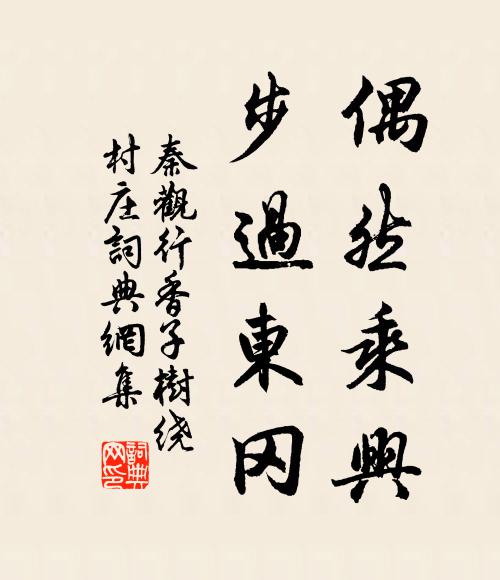 偶然乘興
步過東冈
秦觀行香子樹绕
村庄詞典網集
詞典网印